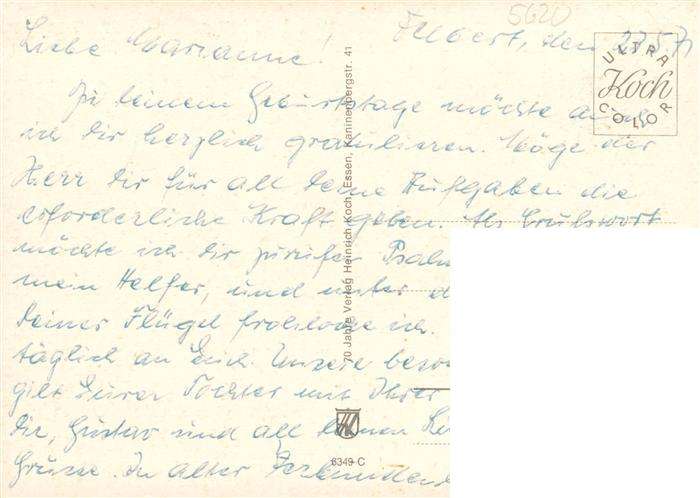 5620
Velbert, den 27.5.71
Liebe Marianne!
Zu deinem Geburtstage möchte auch
ich dir herzlich gratulieren. Möge der
Herr dir für all deine Aufgaben die
erforderliche Kraft geben. Als Grußwort
möchte ich dir zurufen Psalm
mein Helfer, und unter d
deiner Flügel frohlocke ich.
täglich an Euch. Unsere beso
gilt Eurer Tochter mit Ihrer
dir, Gustav und all deinen
Grüsse. In alter
ULTRA
Koch
COLOR
70 Jahre Verlag Heinrich Koch, Essen, Kaninenbergstr. 41
6349-C